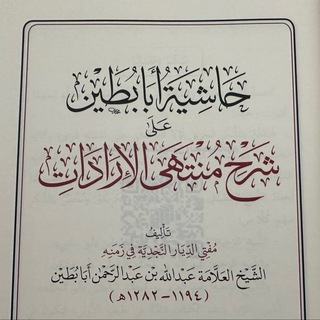 حَاشِيَة أَبَا بُطَيْن
عَلَى
شَرْح مُنْتَهَى الإِرَادَاتِ
تَأْلِيفُ
مُفْتِي الدِّيَارِ النَّجْدِيَّةِ فِي زَمَنِهِ
الشَّيْخِ العَلَّامَة عَبْدِاللهِ بْنِ عَبْدِالرَّحْمٰنِ أَبَا بُطَيْن
(١١٩٤-١٢٨٢هـ)